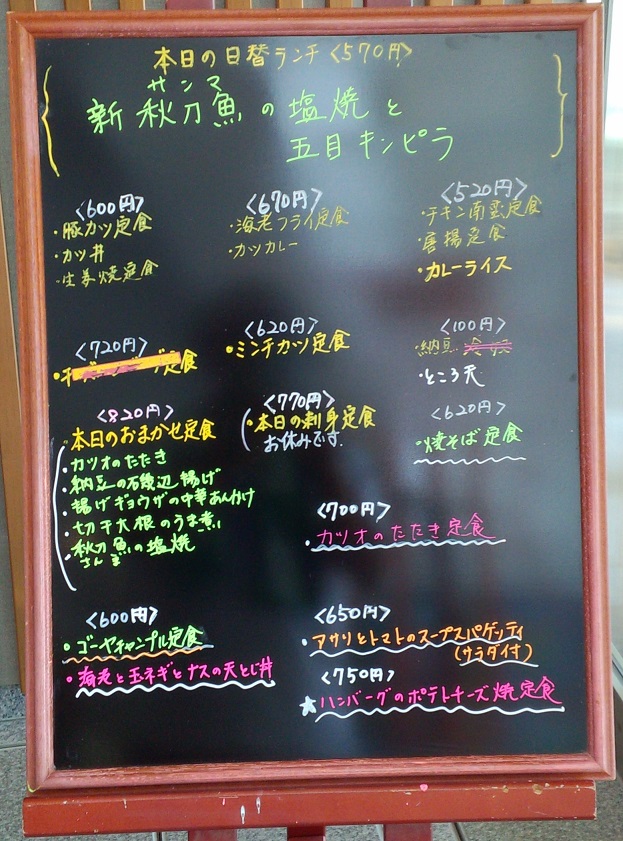 本日の日替ランチ〈570円〉
サンマ
新秋刀魚の塩焼と
五目キンピラ
〈600円〉
・豚カツ定食
・カツ丼
・生姜焼定食
〈670円〉
・海老フライ定食
・カツカレー
〈520円〉
・チキン南蛮定食
・唐揚定食
・カレーライス
〈720円〉
定食
〈620円〉
・ミンチカツ定食
〈100円〉
・納豆
・ところ天
〈820円〉
本日のおまかせ定食
・カツオのたたき
・納豆の石磯辺揚げ
・揚げギョウザの中華あんかけ
・切干大根のうま煮
・秋刀魚の塩焼
さんま
〈770円〉
・本日の刺身定食
お休みです.
〈620円〉
・焼そば定食
〈700円〉
・カツオのたたき定食
〈600円〉
・ゴーヤチャンプル定食
・海老と玉ネギとナスの天とじ丼
〈650円〉
・アサリとトマトのスープスパゲッティ
(サラダ付)
〈750円〉
★ハンバーグのポテトチーズ焼定食